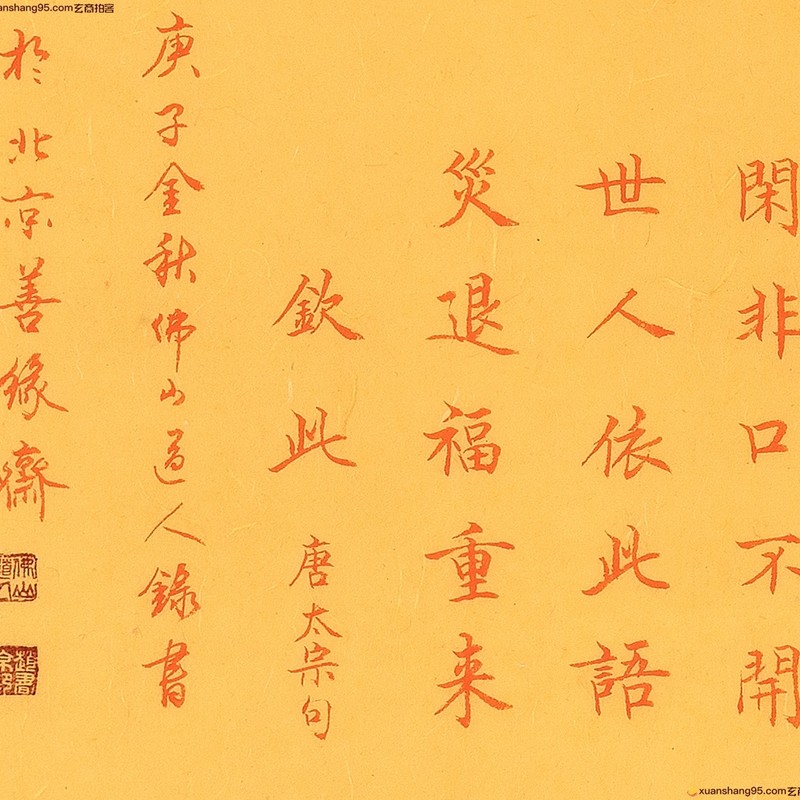 anshang95.com玄商拍客
閑非口不開
世人依此語
災退福重来
欽此
唐太宗句
庚子金秋佛山道人錄書
於北京善緣齋
佛山道人
xuanshang95.com玄商